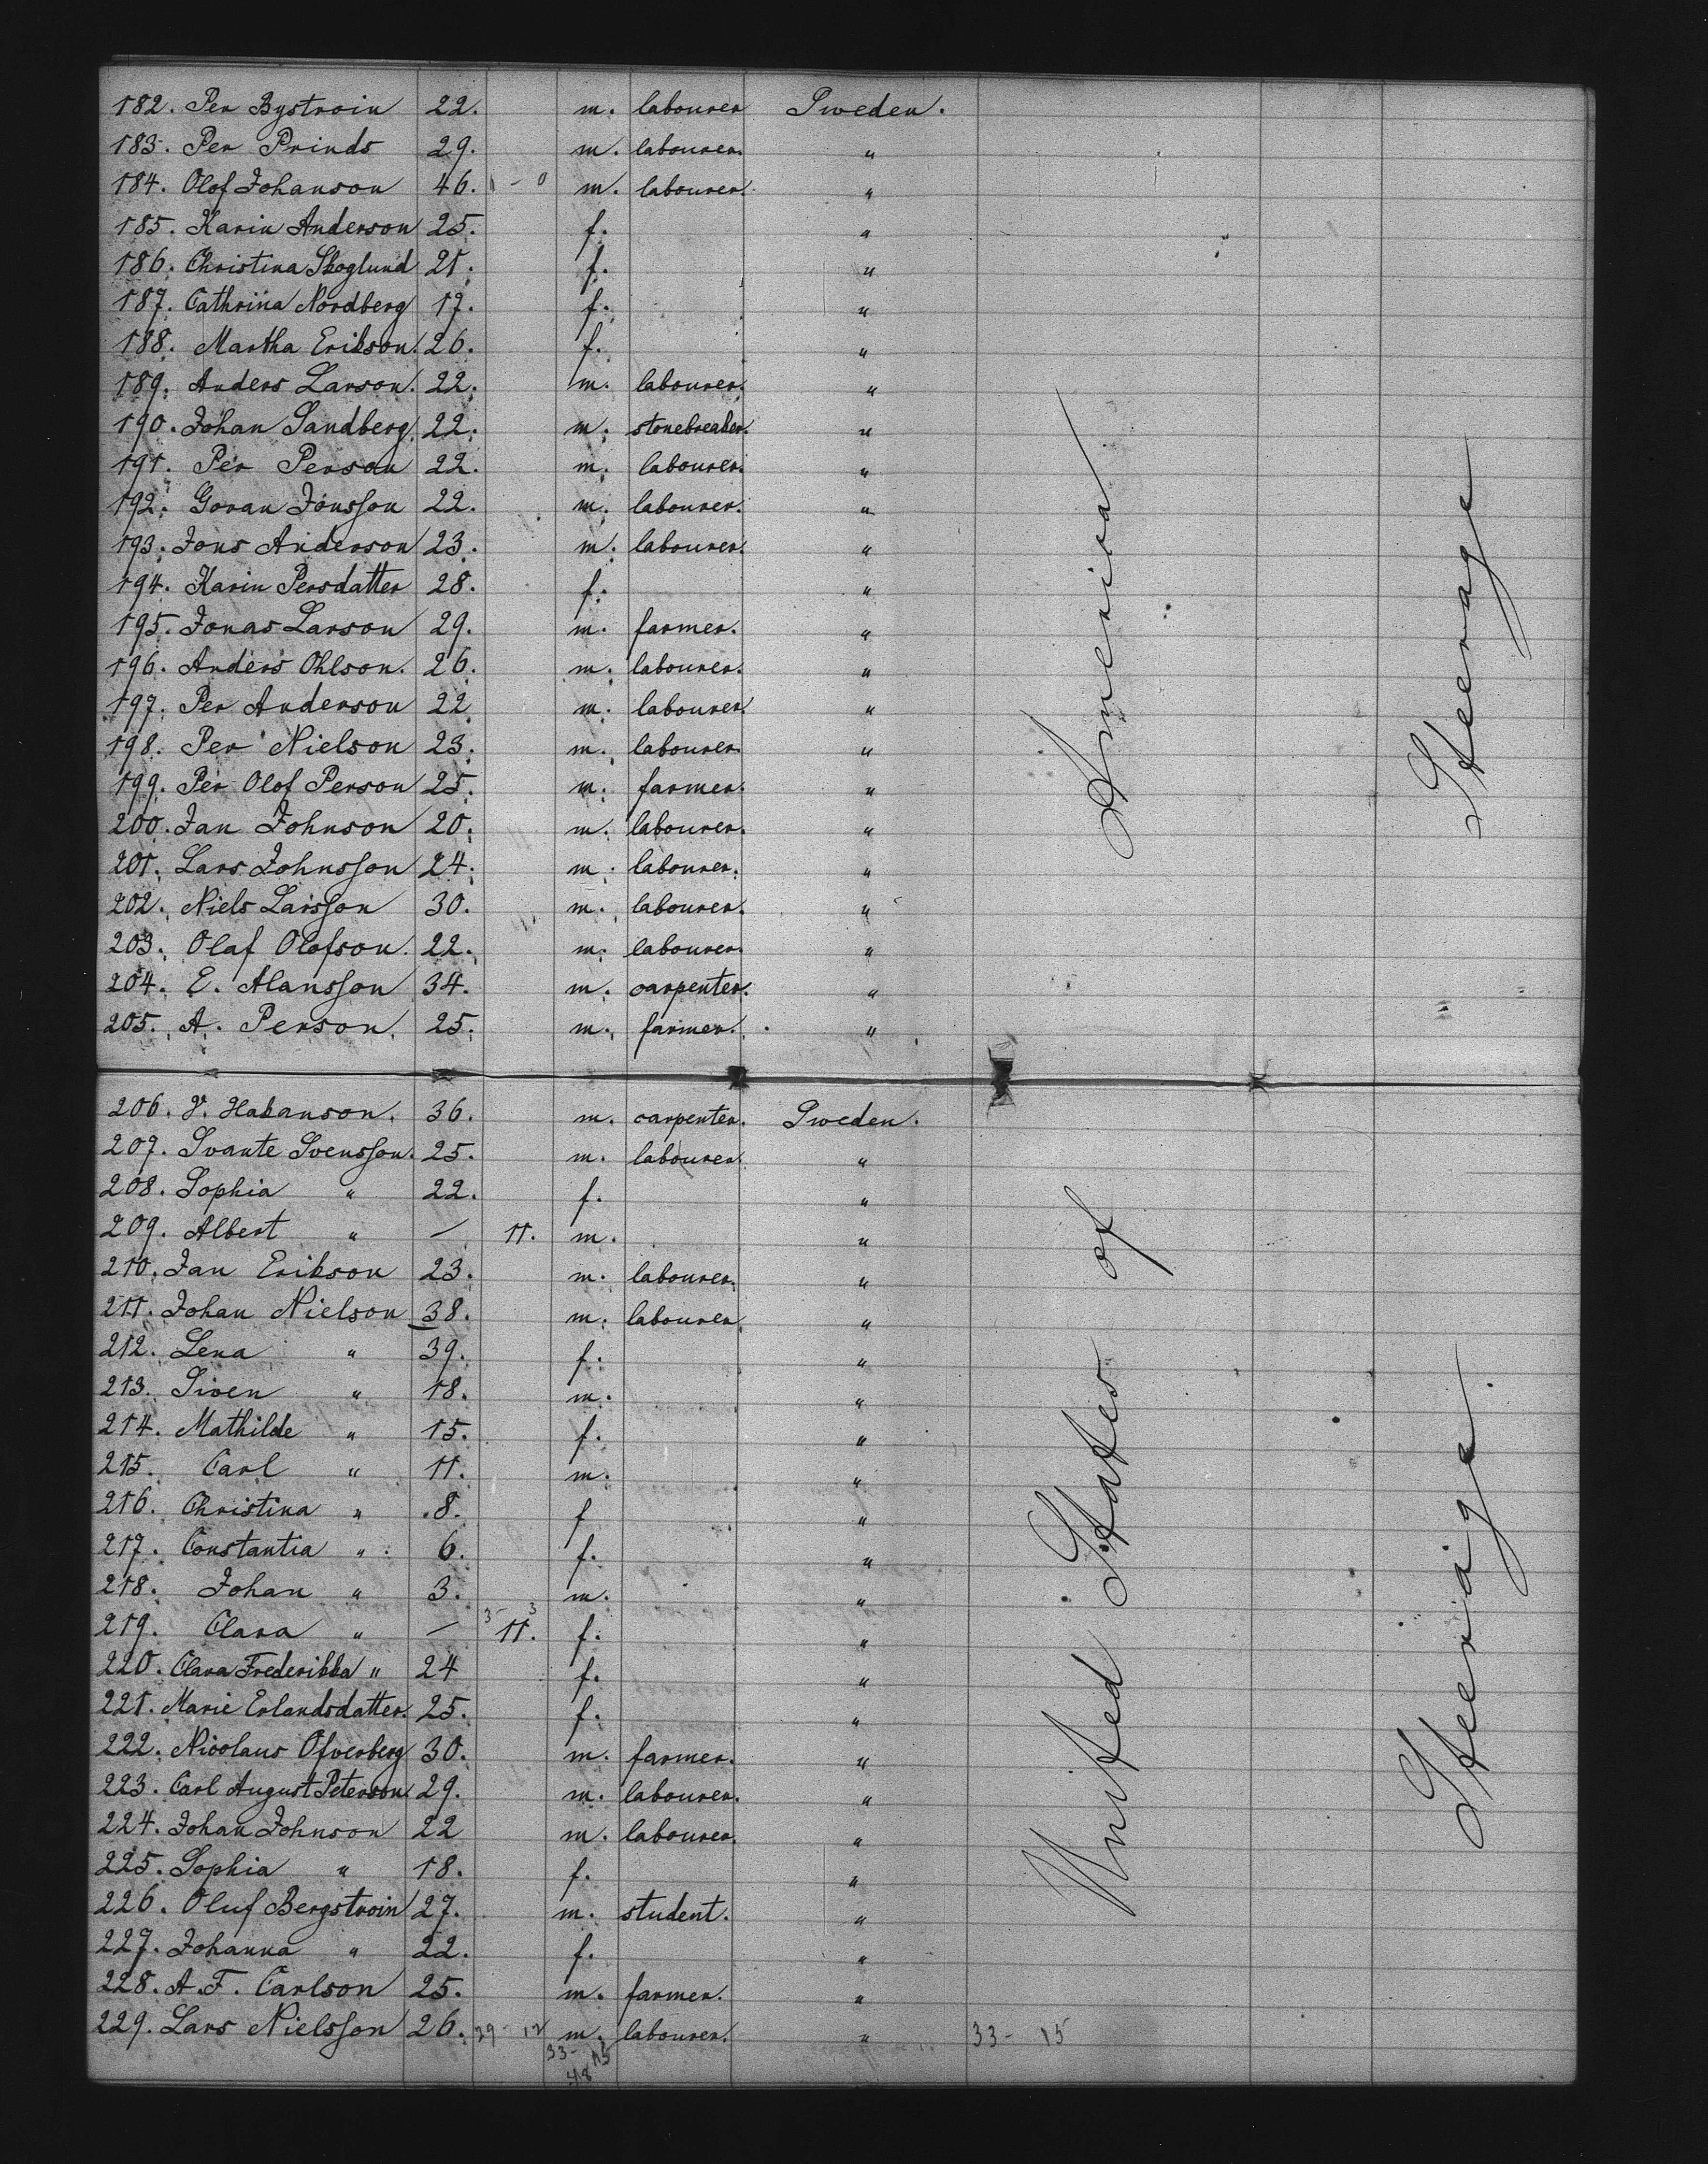 182. Per Bystroin 22. m. labourer Sweden.
183. Per Prinds 29. m. labourer. "
184. Olof Johanson 46. 1 - 0 m. labourer. "
185. Karin Anderson 25. f. "
186. Christina Skoglund 21. f. "
187. Cathrina Nordberg 17. f. "
188. Martha Erikson. 26. f. "
189. Anders Larson. 22. m. labourer. "
190. Johan Sandberg. 22. m. stonebreaker. "
191. Per Person 22. m. labourer. "
192. Goran Jonsson 22. m. labourer. "
193. Jons Anderson 23. m. labourer. "
194. Karin Persdatter 28. f. "
195. Jonas Larson 29. m. farmer. "
196. Anders Ohlson. 26. m. labourer. "
197. Per Anderson 22 m. labourer. "
198. Per Nielson 23. m. labourer. "
199. Per Olof Person 25. m. farmer. "
200. Jan Johnson 20. m. labourer. "
201. Lars Johnsson 24. m. labourer. "
202. Niels Larsson 30. m. labourer. "
203. Olaf Olofson. 22. m. labourer. "
204. E. Alansson 34. m. carpenter. "
205. A. Person. 25. m. farmer. "
206. V. Hakanson. 36. m. carpenter. Sweden.
207. Svante Svensson. 25. m. labourer. "
208. Sophia " 22. f. "
209. Albert " — 11. m. "
210. Jan Erikson 23. m. labourer. "
211. Johan Nielson 38. m. labourer. "
212. Lena " 39. f. "
213. Siven " 18. m. "
214. Mathilde " 15. f. "
215. Carl " 11. m. "
216. Christina " 8. f "
217. Constantia " 6. f. "
218. Johan " 3. m. "
219. Clara " — 3- 3 11. f. "
220. Clara Frederikka " 24 f. "
221. Marie Erlandsdatter. 25. f. "
222. Nicolaus Ofverberg 30. m. farmer. "
223. Carl August Peterson 29. m. labourer. "
224. Johan Johnson 22 m. labourer. "
225. Sophia " 18. f. "
226. Oluf Bergstroin 27. m. student. "
227. Johanna " 22. f. "
228. A. F. Carlson 25. m. farmer. "
229. Lars Nielsson 26. 29- 12 m. labourer. " 33- 15
33- 15
48
United States of America
Steerage.
Steerage